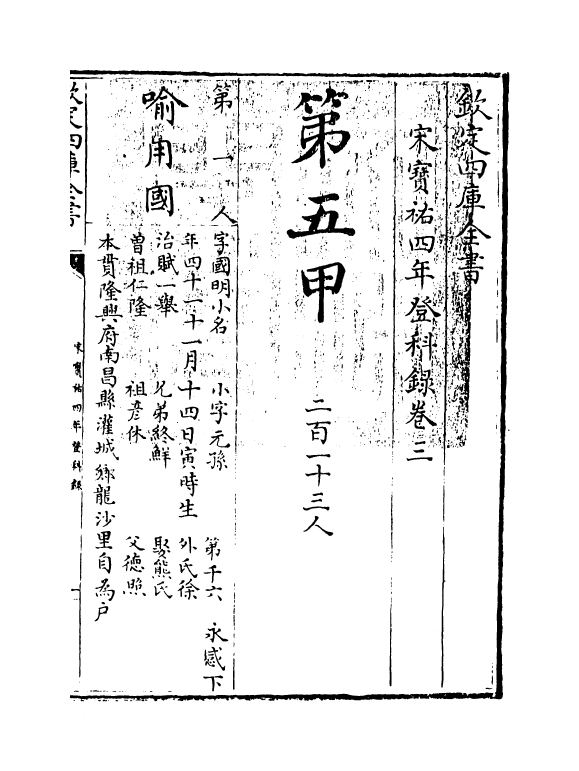 欽定四庫全書
宋寶祐四年登科錄卷三
第五甲 二百一十三人
第一人
喻用國
字國明小名 小字元孫 第千六 永感下
年四十一十一月十四日寅時生 外氏徐
治賦一舉 兄弟終鮮 娶熊氏
曾祖仁隆 祖彦休 父德照
本貫隆興府南昌縣灌城鄉龍沙里自為户
欽定四庫全書
宋寶祐四年登科錄
一